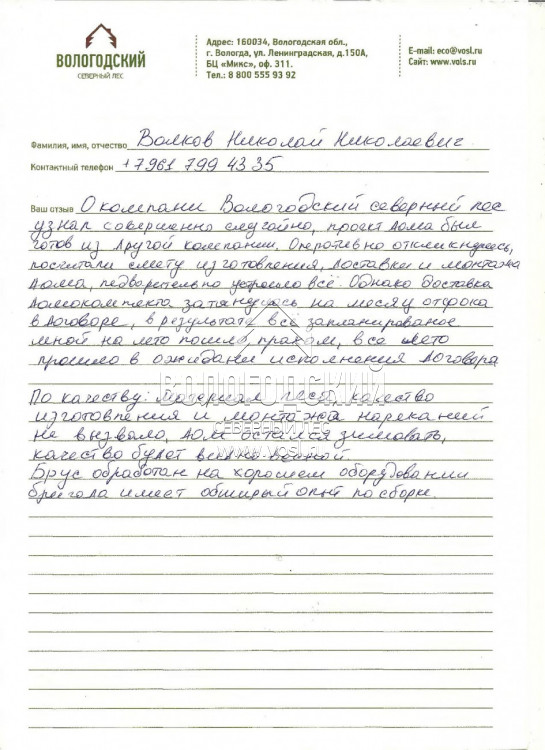 ВОЛОГОДСКИЙ
СЕВЕРНЫЙ ЛЕС
Адрес: 160034, Вологодская обл.,
г. Вологда, ул. Ленинградская, д.150А,
БЦ «Микс», оф. 311.
Тел.: 8 800 555 93 92
E-mail: eco@vosl.ru
Сайт: www.vols.ru
Фамилия, имя, отчество Волков Николай Николаевич
Контактный телефон +7 961 799 43 35
Ваш отзыв О компани Вологодский северный лес
узнал совершенно случайно, проект дома был
готов из другой компании. Оперативно откликнулись,
посчитали смету изготовления, доставки и монтажа
дома, педворительно устроило всё. Однако доставка
домокомплекта затянулась на месяц от срока
в договоре, в результате всё запланированое
мной на лето пошло прахом, все лето
прошло в ожидании исполнения договора
По качеству: материал леса, качество
изготовления и монтажа нареканий
не вызвало, дом остался зимовать,
качество будет видно весной.
Брус обработан на хорошем оборудовании
бригада имеет обширый опыт по сборке.
ВОЛОГОДСКИЙ
СЕВЕРНЫЙ ЛЕС
www.vosl.ru
ВОЛОГОДСКИЙ
СЕВЕРНЫЙ ЛЕС
www.vosl.ru